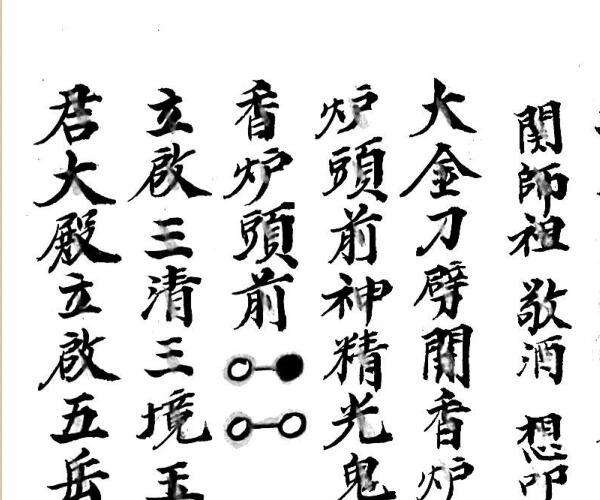 関師祖 敬酒 想叩
大金刀劈開香炉
炉頭前神精光鬼
香炉頭前
立啟三清三境玉
君大殿立啟五岳